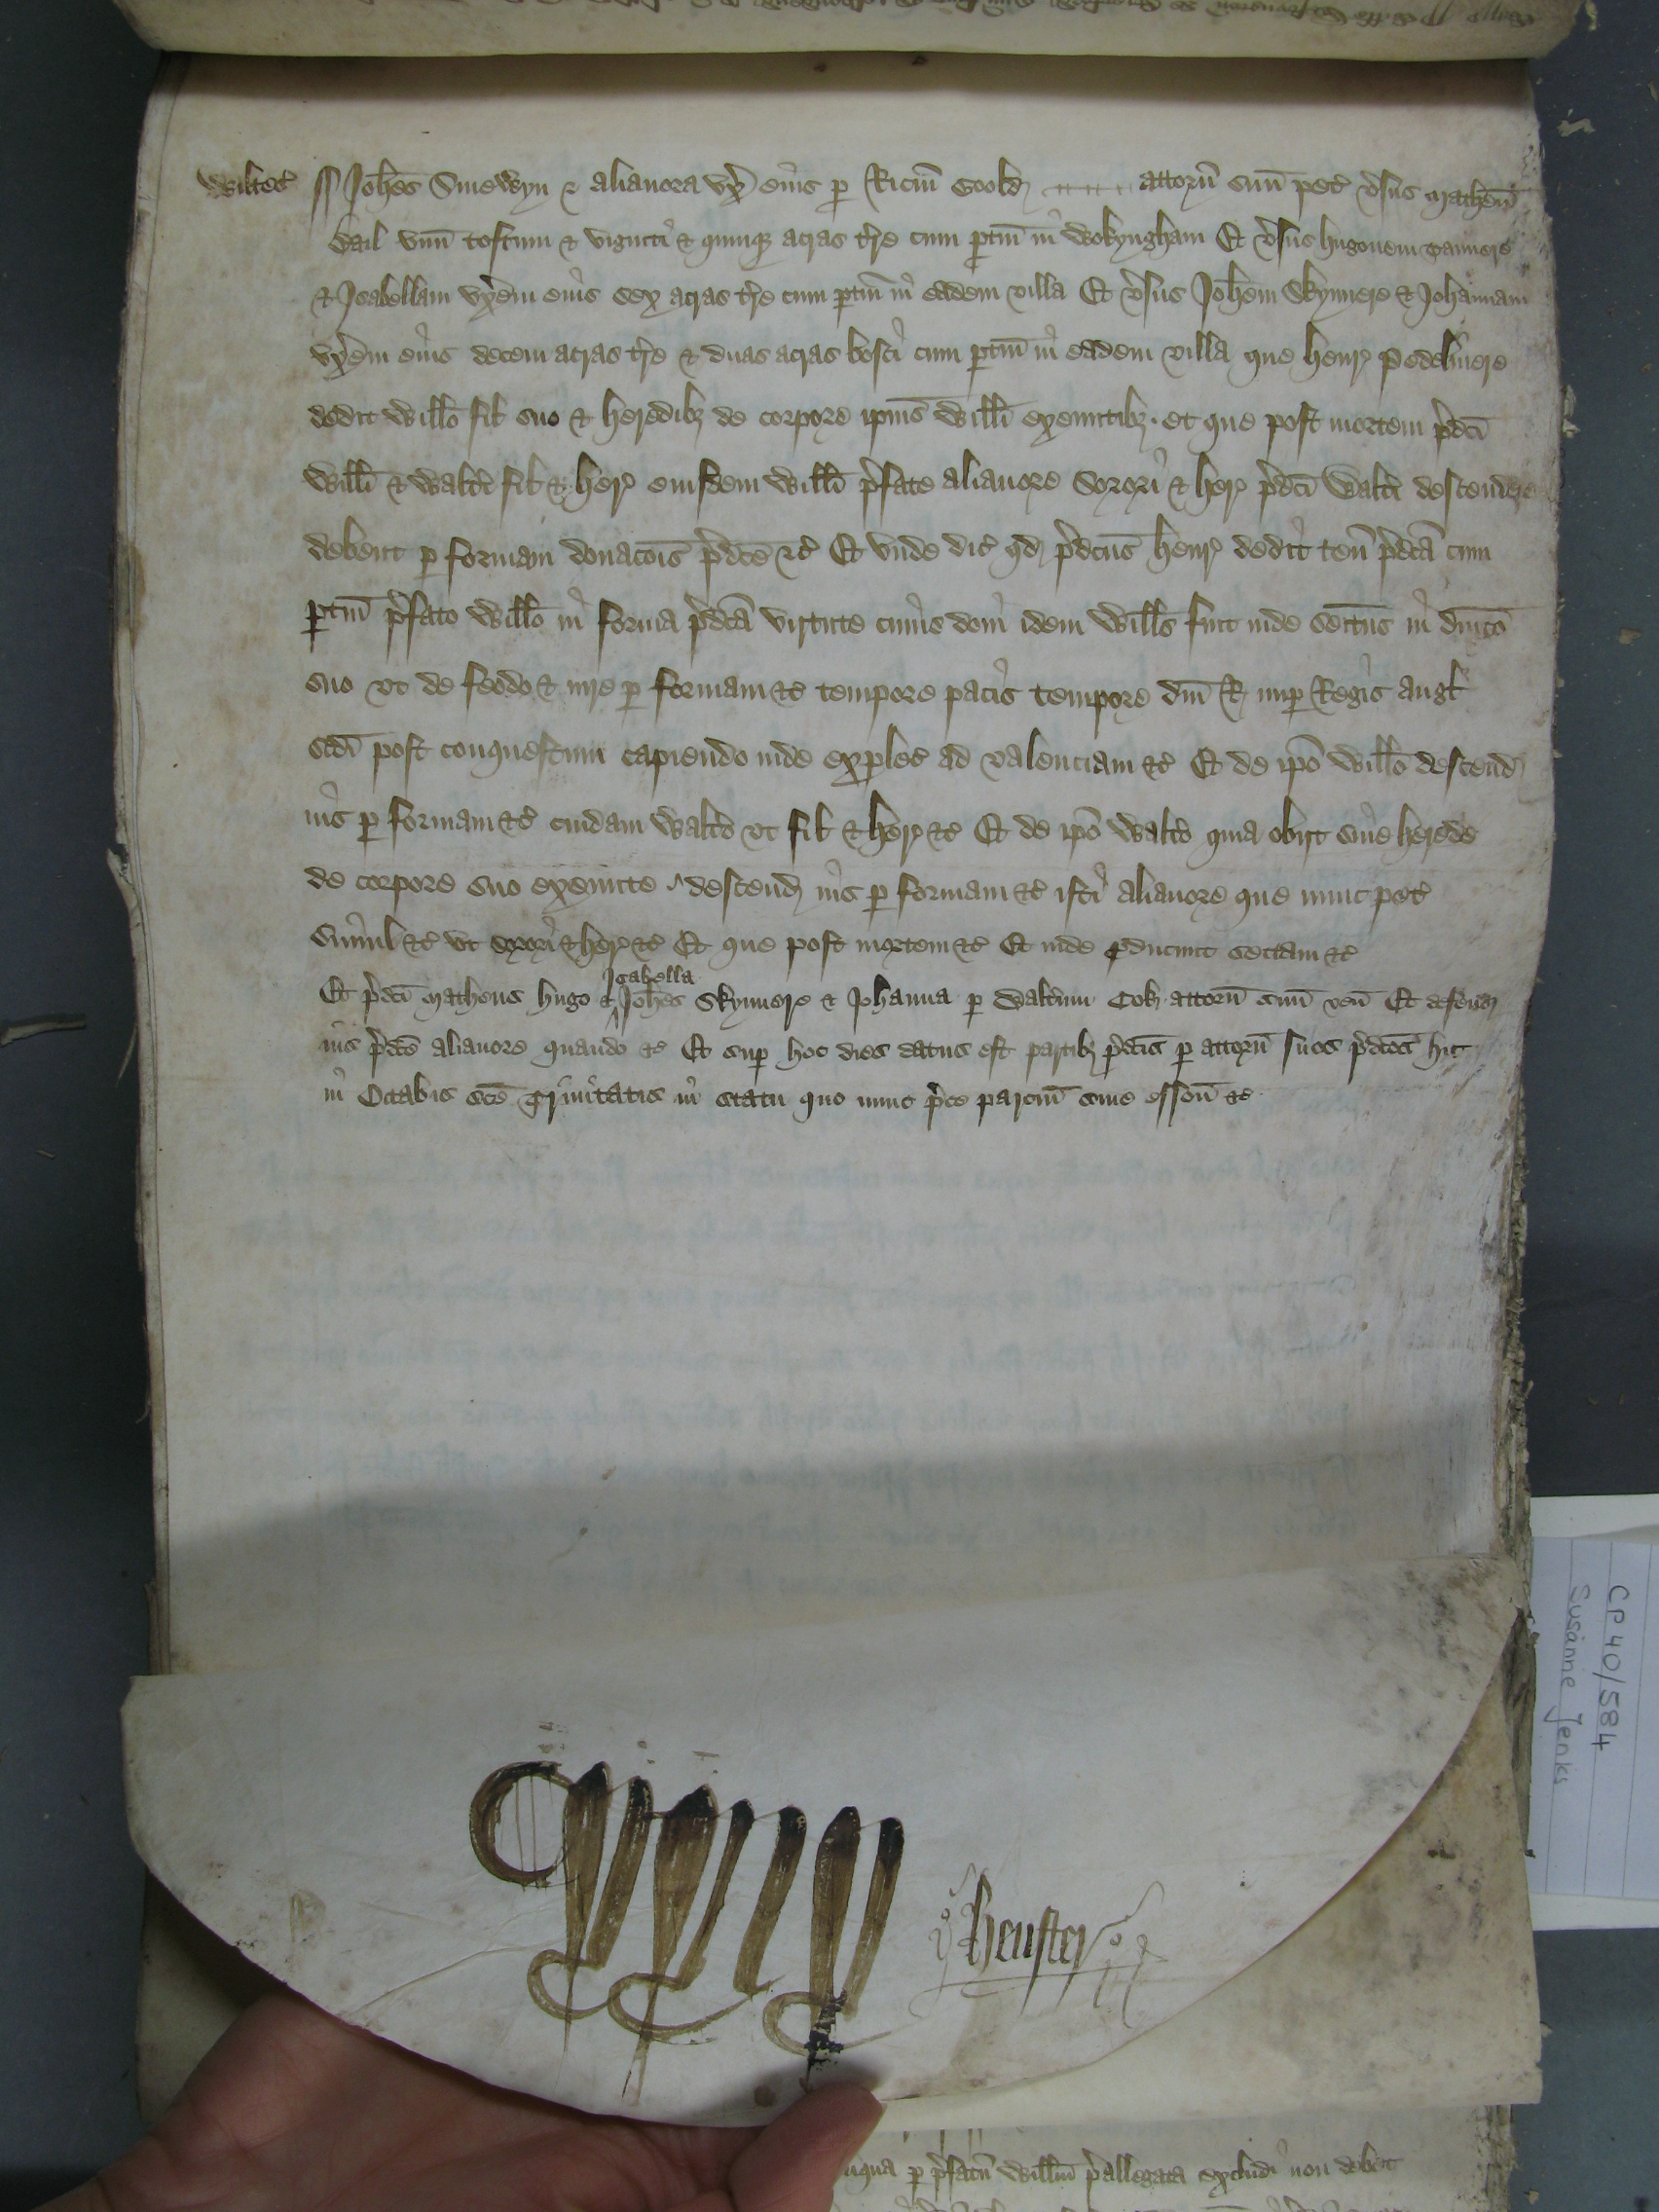 Wiltes' Joh̄es Smewyn & alianora ux' eius p Ric̄m Goold attorn̄ suū pet' v'sus Mathēm
Dail unū toftum & viginti & quinq acras t're cum p'tin̄ in Wokyngham Et v'sus hugonem Tannere
& Isabellam ux'em eius sex acras t're cum p'tin̄ in eadem villa Et v'sus Joh̄em Skynnere & Johannam
ux'em eius decem acras t're & duas acras bosci cum p'tin̄ in eadem villa que henr'
dedit Will̄o fil' suo & heredib3 de corpore ip̄ius Will̄i exeuntib3 et que post mortem p'dc̄i
Will̄i & Walt'i fil' & her' eiusdem Will̄i p'fate alianore Sorori & her' p'dc̄i Walt'i descendere
debent p formam donac̄ois p'dc̄e &c' Et unde dic' qd p'dc̄us henr' dedit ten̄ p'dc̄a cum
p'tin̄ p'fato Will̄o in forma p'dc̄a virtute cuius doni idem Will̄s fuit inde seit̄us in dn̄ico
suo ut de feodo & iure p formam &c' tempore pacis tempore dn̄i R nup Regis angl'
sc̄di post conquestum capiendo inde exples' ad valenciam &c' Et de ip̄o Will̄o descend
ius p formam &c' cuidam Walt'o ut fil' & her' &c' Et de ip̄o Walt'o quia obijt sine herede
de corpore suo exeunte descend ius p formam &c' isti alianore que nunc pet'
Simul &c' ut sorori & her' &c' Et que post mortem &c' Et inde producunt sectam &c'
Et p'dc̄i Matheus hugo & Isabella Joh̄es Skynnere & Johanna p Walt'um Cok attorn̄ suū ven̄ Et defend
ius p'dc̄e alianore quando &c' Et sup hoc dies datus est partib3 p'dc̄is p attorn̄ suos p'dc̄os hic
in Octabis sc̄e Trinitatis in statu quo nunc p'ce parciū sine esson̄ &c'
CP 40/584
Susanne Jenks
p p'fatū Will̄m p'allegata excludi non debet